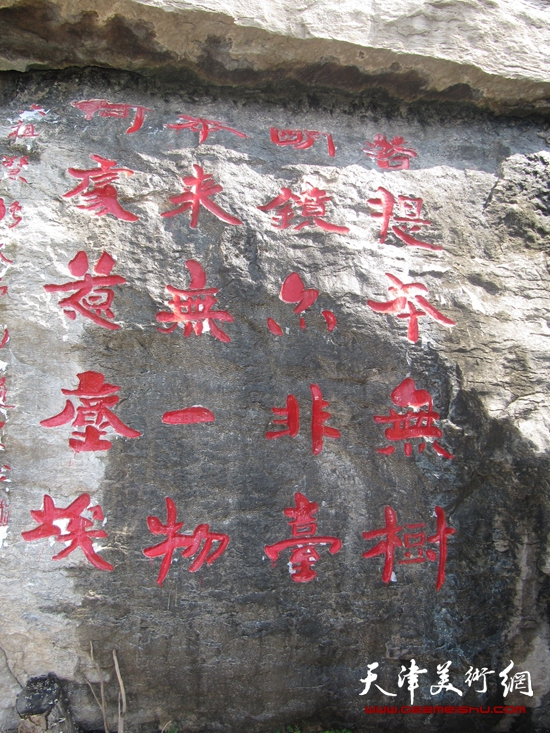 菩提本無樹
明鏡亦非臺
本来無一物
何處惹塵埃
六祖
天津美術網
www.022meishu.com